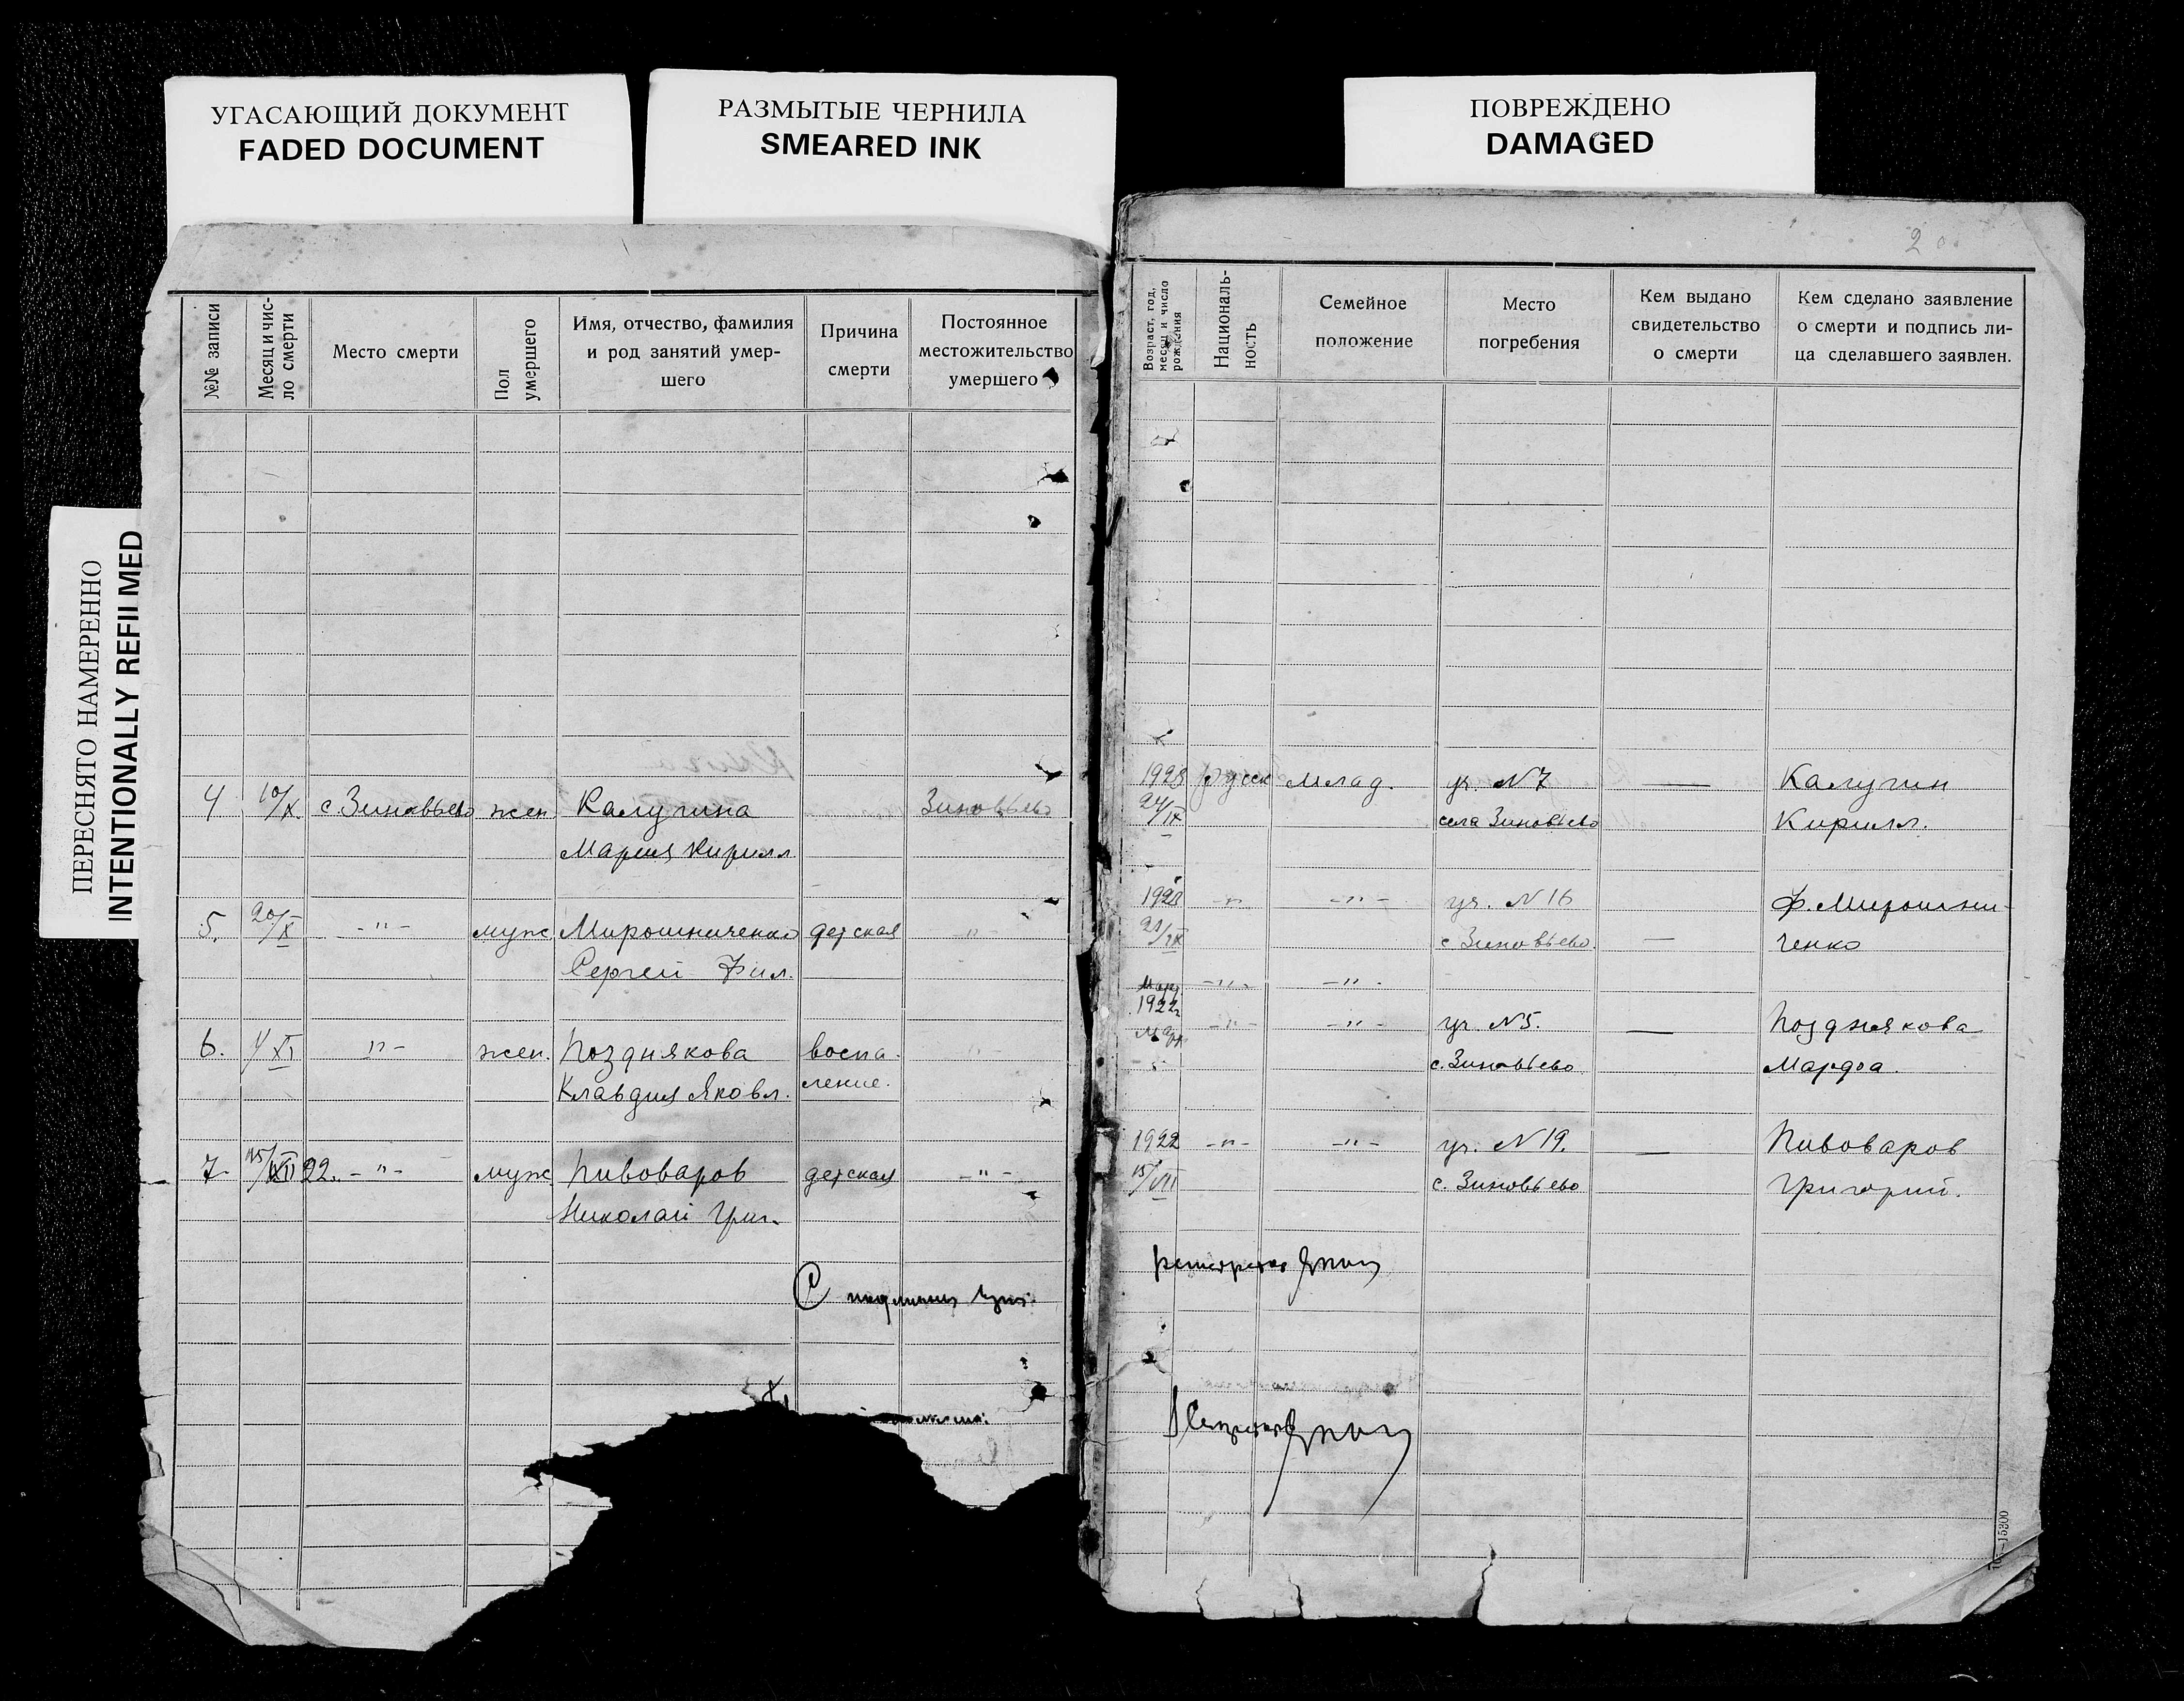 УГАСАЮЩИЙ ДОКУМЕНТ
FADED DOCUMENT
РАЗМЫТЫЕ ЧЕРНИЛА
SMEARED INK
ПОВРЕЖДЕНО
DAMAGED
ПЕРЕСНЯТО НАМЕРЕННО
INTENTIONALLY REFILMED
№№ записи
Месяц и чис-
ло смерти
Место смерти
Пол
умершего
Имя, отчество, фамилия
и род занятий умер-
шего
Причина
смерти
Постоянное
местожительство
умершего
4 10/X. с. Зиновьево жен Калугина Зиновьево
Мария Кирилл
5. 20/X -"- муж. Мирошниченко детская -"-
Сергей Фил.
6. 4/XI -"- жен. Позднякова воспа-
Клавдия Яковл. ление.
7. 22. -"- муж Пивоваров детская -"-
Николай Григ.
С
2
Возраст, год,
месяц и число
рождения
Националь-
ность
Семейное
положение
Место
погребения
Кем выдано
свидетельство
о смерти
Кем сделано заявление
о смерти и подпись ли-
ца сделавшего заявлен.
русск млад. уч. N 7 — Калугин
24/IX села Зиновьево Кирилл.
-"- -"- уч. N 16 Ф. Мирошни-
с Зиновьево — ченко
-"- -"-
1922
-"- -"- уч. N 5. — Позднякова
с. Зиновьево Марфа.
1922 -"- -"- уч. N 19. — Пивоваров
15/VII с. Зиновьево Григорий.
15300